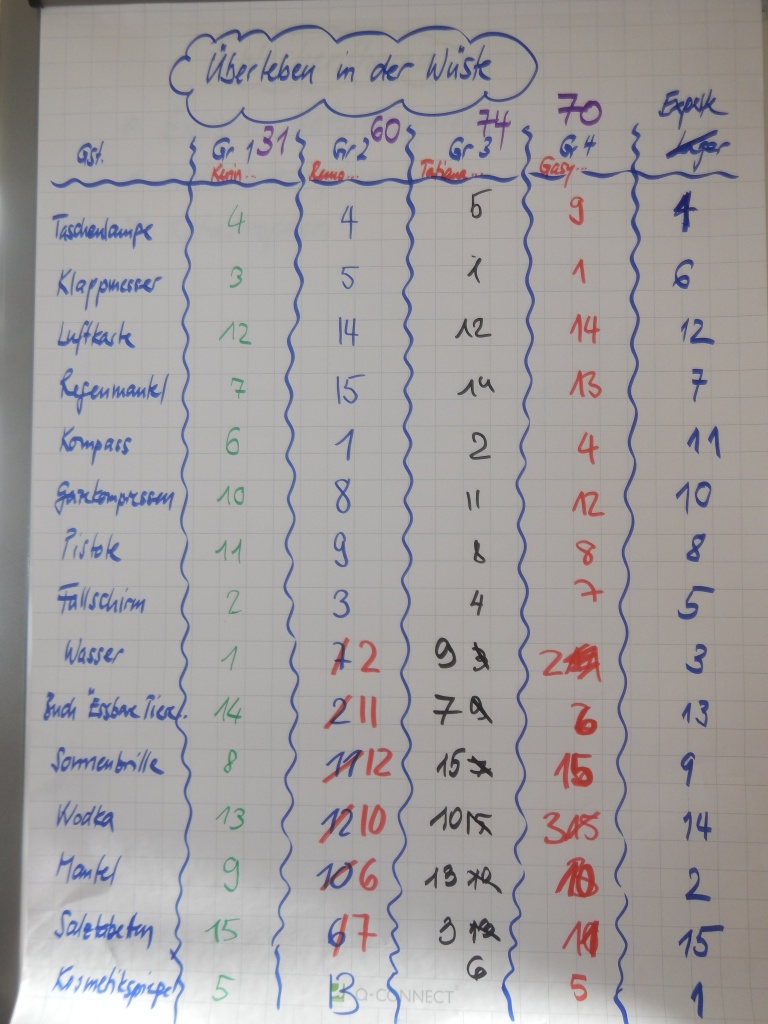 Überleben in der Wüste
Gst. Gr 1 31 Gr 2 60 Gr 3 74 Gr 4 70 Experte
Kevin... Remo... Tatjana... Gasy...
Taschenlampe 4 4 5 9 4
Klappmesser 3 5 1 1 6
Luftkarte 12 14 12 14 12
Regenmantel 7 15 14 13 7
Kompass 6 1 2 4 11
Gazekompressen 10 8 11 12 10
Pistole 11 9 8 8 8
Fallschirm 2 3 4 7 5
Wasser 1 7 2 9 3 2 3
Buch "Essbare Tiere" 14 2 11 7 9 6 13
Sonnenbrille 8 11 12 15 7 15 9
Wodka 13 12 10 10 15 3 15 14
Mantel 9 10 6 13 12 10 2
Salztabletten 15 6 7 3 13 11 15
Kosmetikspiegel 5 13 6 5 1
Q-CONNECT